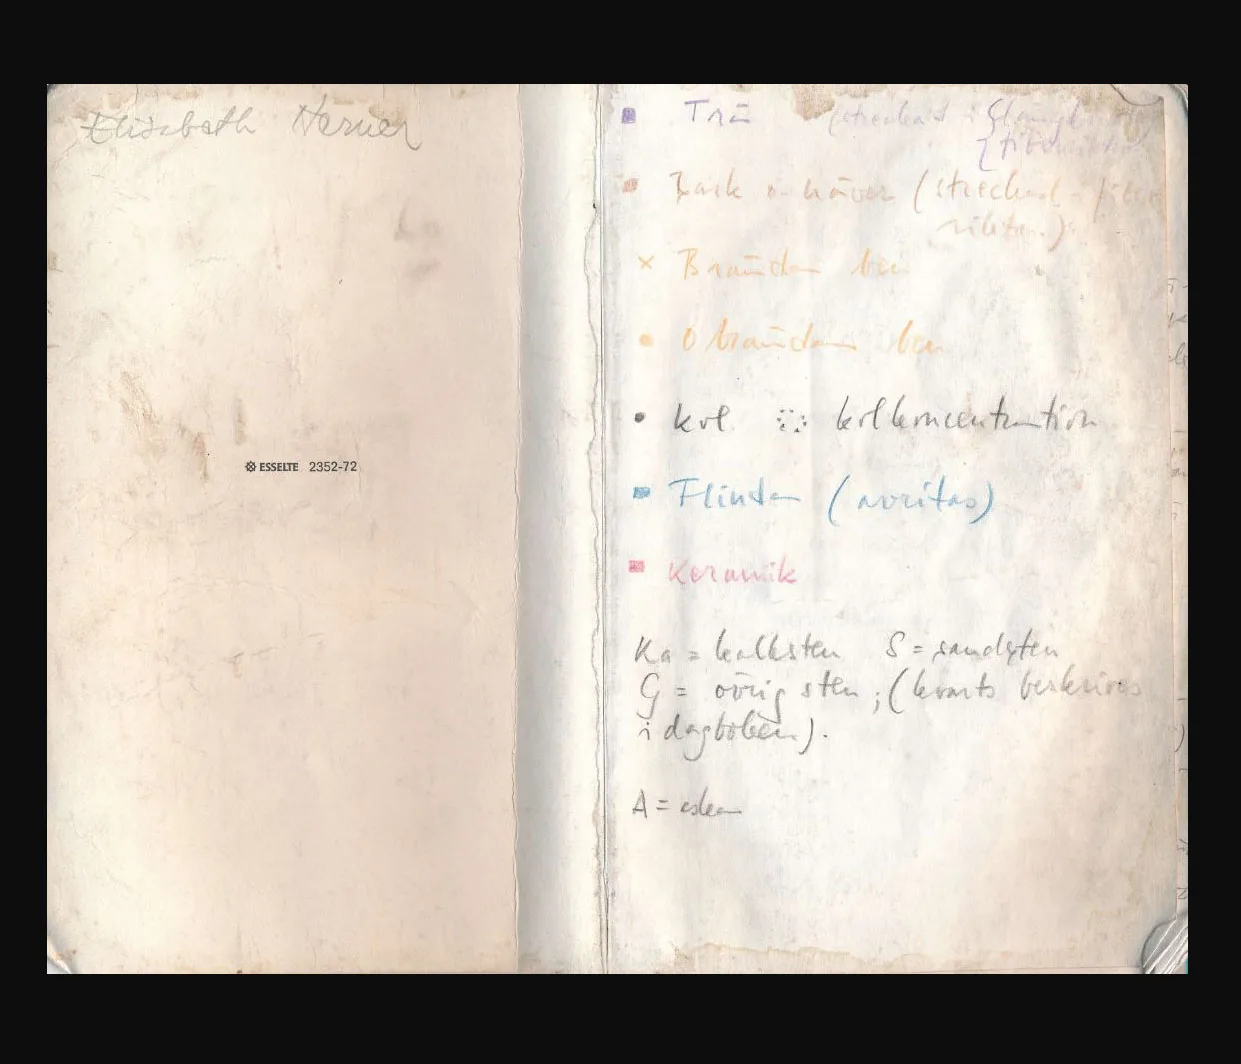 Elisabeth Herner
ESSELTE 2352-72
Trä (streckat i
Bark o näver (streckad i fiber
rikten.)
Brända ben
Obrända ben
kol kolkoncentration
Flinta (avritas)
Keramik
Ka = kalksten S = sandsten
G = övrig sten ; (kvarts beskrives
i dagboken).
A =